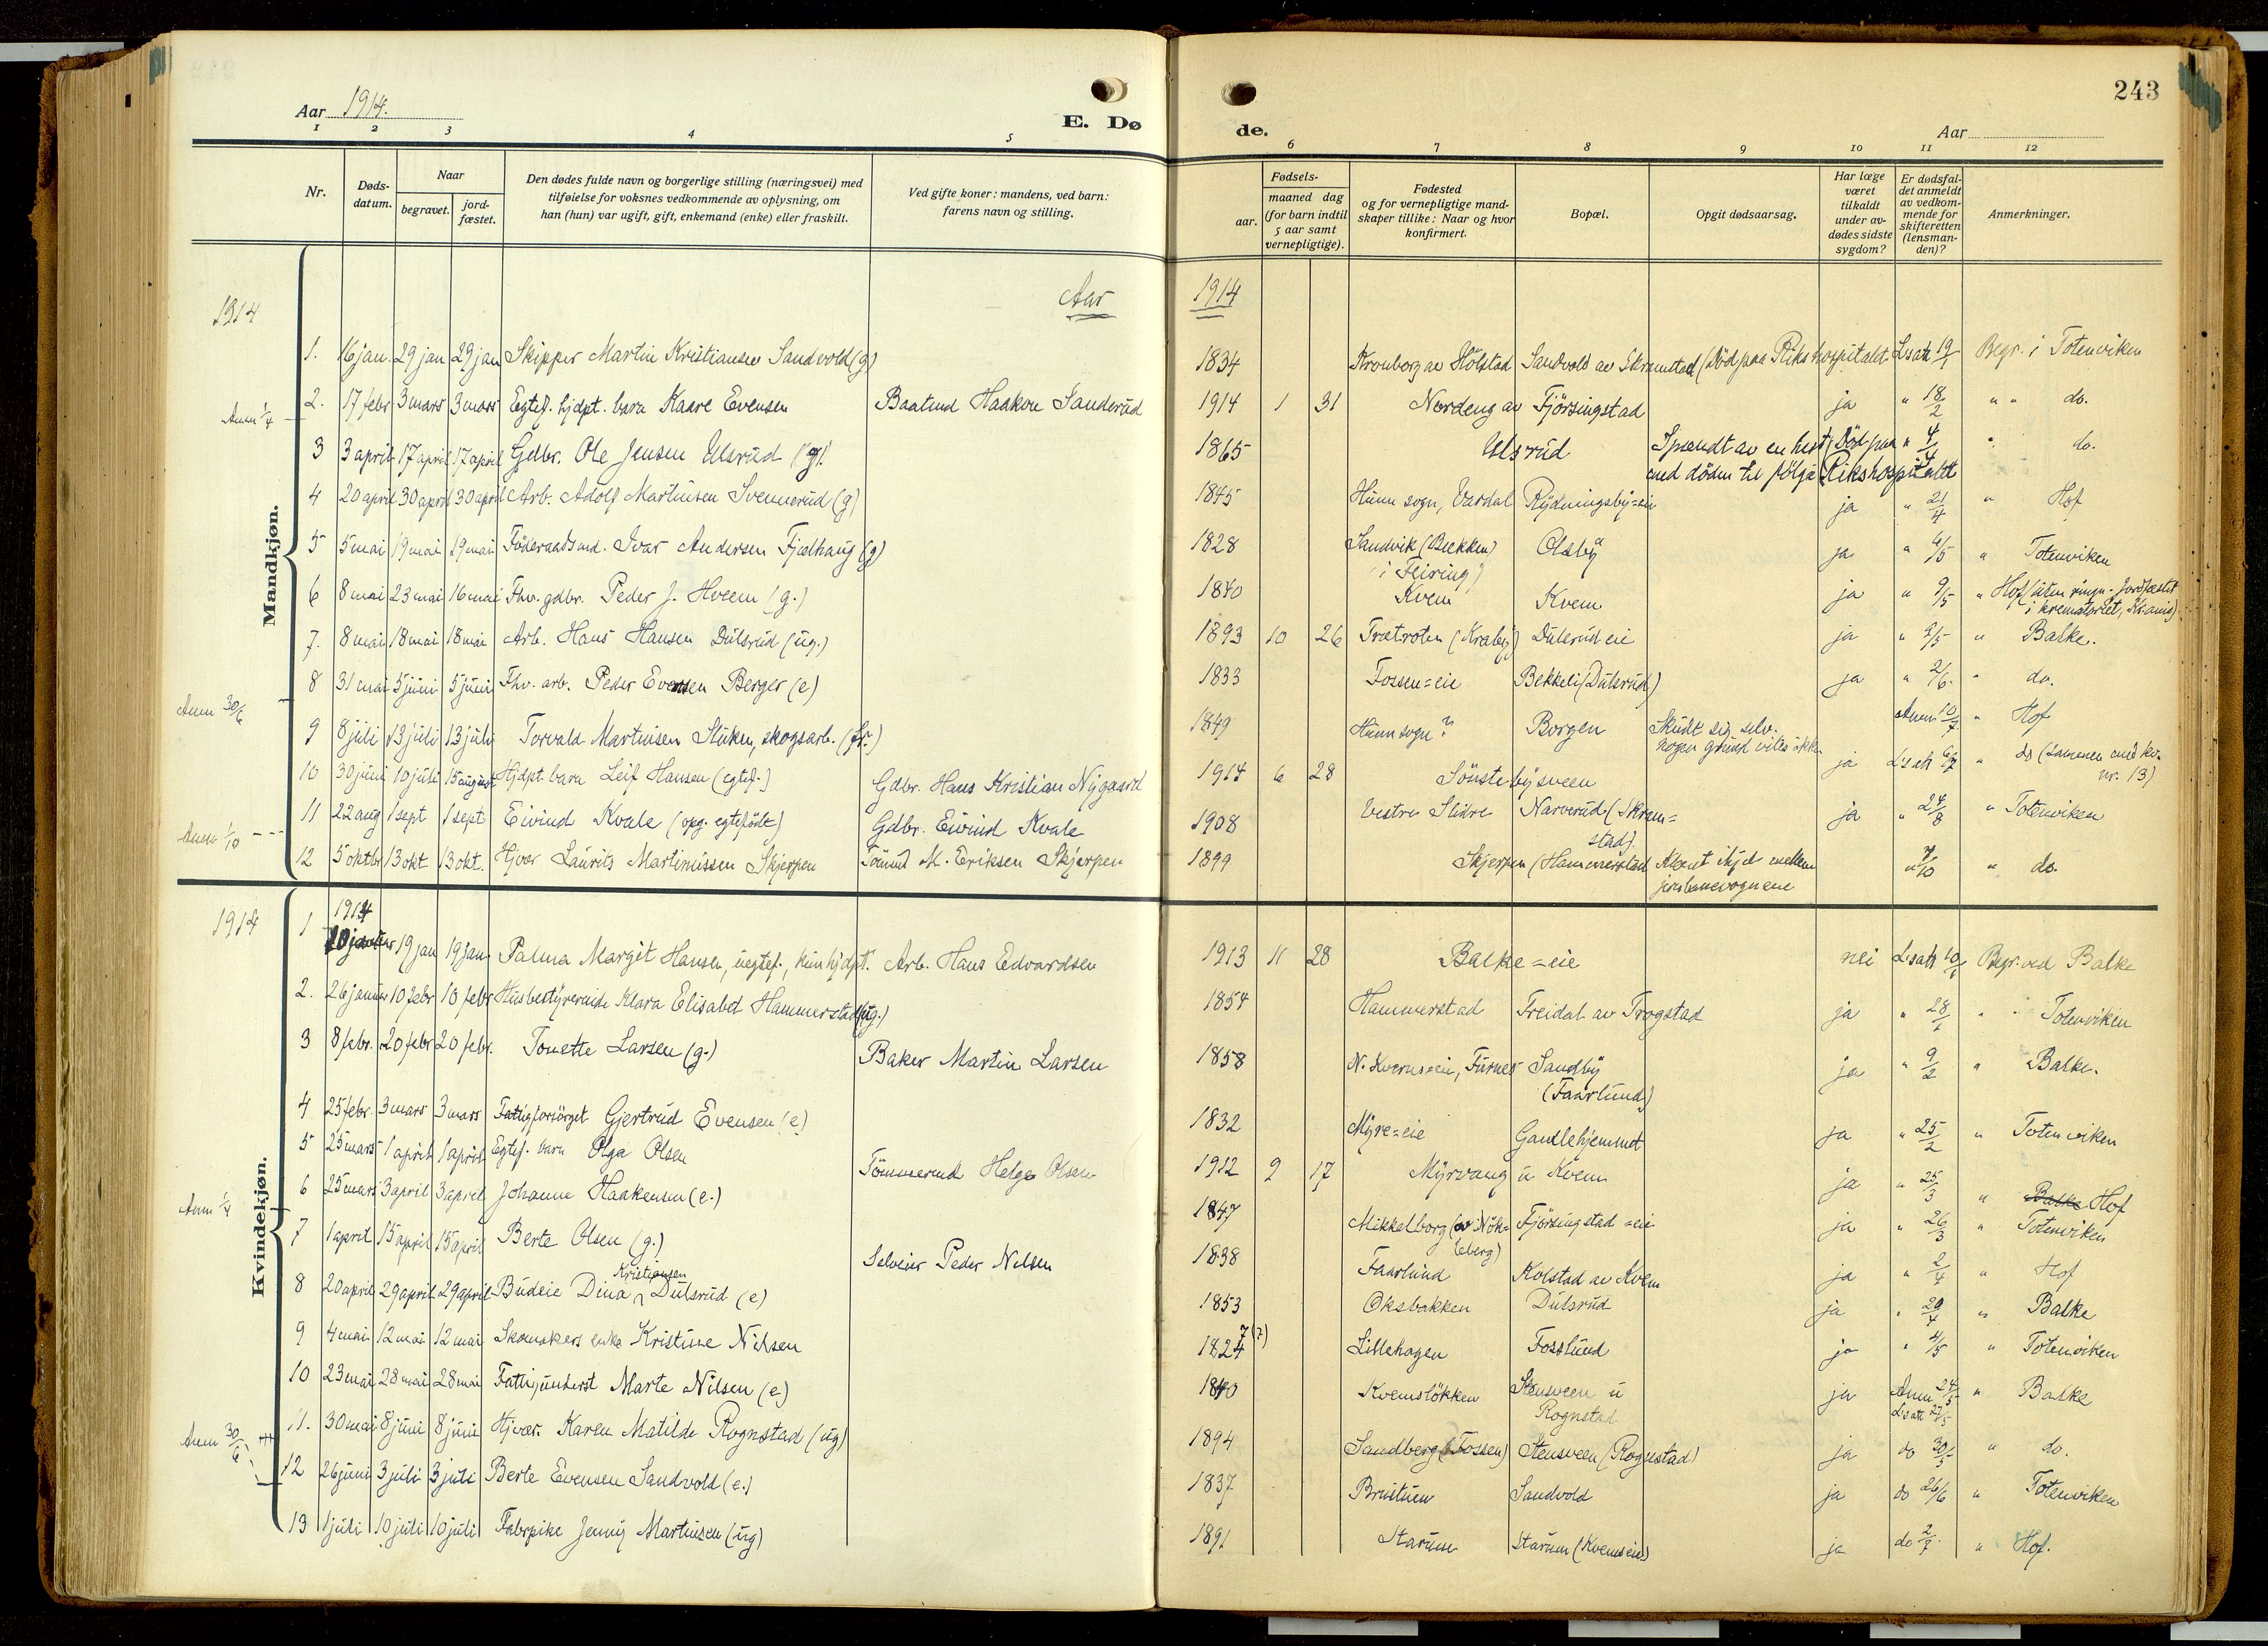 243
Aar 1914.
E. Dø
de.
Aar
1 2 3 4 5 6 7 8 9 10 11 12
Nr.
Døds-
datum.
Naar
begravet.
jord-
fæstet.
Den dødes fulde navn og borgerlige stilling (næringsvei) med
tilføielse for voksnes vedkommende av oplysning, om
han (hun) var ugift, gift, enkemand (enke) eller fraskilt.
Ved gifte koner: mandens, ved barn:
farens navn og stilling.
Fødsels-
aar.
maaned dag
(for barn indtil
5 aar samt
vernepligtige).
Fødested
og for vernepligtige mand-
skaper tillike: Naar og hvor
konfirmert.
Bopæl.
Opgit dødsaarsag.
Har læge
været
tilkaldt
under av-
dødes sidste
sygdom?
Er dødsfal-
det anmeldt
av vedkom-
mende for
skifteretten
(lensman-
den)?
Anmerkninger.
1914
Aar 1914
Mandkjøn.
1. 16 jan. 29 jan 29 jan Skipper Martin Kristiansen Sandvold (g) 1834 Kronborg av Hölstad Sandvold av Skramstad (Död paa Rikshospitalet Lsatt 19/1 Begr. i Totenviken
Anm 1/4
2. 17 febr 3 mars 3 mars Egtef. hjdpt. barn Kaare Evensen Baatmd Haakon Sanderud 1914 1 31 Nordeng av Fjörsingstad ja " 18/2 " " do.
3 3 april 17 april 17 april Gdbr. Ole Jensen Ulsrud (g). 1865 Ulsrud Spændt av en hest (Död paa " 4/4 " do.
med döden til følge Rikshospitalet
4 20 april 30 april 30 april Arb. Adolf Martinsen Svennerud (g) 1845 Hunn sogn, Vardal Rydningsby=eie ja " 21/4 " Hof
5 5 mai 19 mai 19 mai Föderaadsmd. Ivar Andersen Fjælhaug (g) 1828 Sandvik (Bekken) Olsby ja " 4/5 " Totenviken
i Feiring)
6 8 mai 23 mai 16 mai Fhv. gdbr. Peder J. Hveem (g.) 1840 Kvem Kvem ja " 9/5 " Hof (uten ringn. Jordfæstet
i krematoriet, Kr.ania).
7. 8 mai 18 mai 18 mai Arb. Hans Hansen Dulsrud (ug.) 1893 10 26 Trætroten (Kraby) Dulsrud eie ja " 9/5 " Balke.
8 31 mai 5 juni 5 juni Fhv. arb. Peder Evensen Berger (e) 1833 Fossen=eie Bekkeli (Dulsrud) ja " 2/6. " do.
Anm 30/6
9 8 juli 13 juli 13 juli Torvald Martinsen Stuken, skogsarb. (fr.) 1849 Hunn sogn? Borgen Skudt sig selv. Anm 10/7 " Hof
Nogen grund vites ikke.
10 30 juni 10 juli 15 august Hjdpt. barn Leif Hansen (egtef.) Gdbr. Hans Kristian Nygaard 1914 6 28 Sönstebysveen ja Lsatt 6/7 " do (sammen med kv.
nr. 13)
11 22 aug 1 sept 1 sept Eivind Kvale (opg. egtefödt) Gdbr. Eivind Kvale 1908 Vestre Slidre Narverud (Skram=
stad). ja " 24/8 " Totenviken
Anm 1/10
12 5 oktbr 13 okt 13 okt. Hjver Laurits Martinussen Skjerpen M. Eriksen Skjerpen 1899 Skjerpen (Hammerstad Klemt ihjel mellem " 7/10 " do.
jernbanevognene
1914
Kvindekjøn.
1914
1 10 januar 19 jan 19 jan Palma Margit Hansen, uegtef., kun hjdpt. Arb. Hans Edvardsen 1913 11 28 Balke=eie nei Lsatt 10/1 Begr. ved Balke
2. 26 januar 10 febr 10 febr Husbestyrerinde Klara Elisabet Hammerstad (ug.) 1854 Hammerstad Freidal av Trogstad ja " 28/1 " " Totenviken
3 8 febr. 20 febr 20 febr. Tonette Larsen (g.) Baker Martin Larsen 1858 N. Kvernseie, Furnes Sandby ja " 9/2 " Balke.
(Faarlund)
4 25 febr. 3 mars 3 mars Fattigforsörget Gjertrud Evensen (e) 1832 Myre=eie Gamlehjemmet ja " 25/2 " Totenviken
5 25 mars 1 april 1 april Egtef. barn Olga Olsen Tömmermd Helge Olsen 1912 9 17 Myrvang u Kvem ja " 25/3 " Balke Hof
6 25 mars 3 april 3 april Johanne Haakensen (e.) 1847 Mikkelborg (av Nök= Fjörsingstad =eie ja " 26/3 " Totenviken
leberg)
Anm 1/4
7 1 april 15 april 15 april Berte Olsen (g.) Selveier Peder Nilsen 1838 Faarlund Kolstad av Kvem ja " 2/4 " Hof
Kristiansen
8 20 april 29 april 29 april Budeie Dina Dulsrud (e) 1853 Oksbakken Dulsrud ja " 20/4 " Balke
9 4 mai 12 mai 12 mai Skomakers enke Kristine Nilsen 1824 7(?) Lillehagen Fosslund ja " 4/5 " Totenviken
10 23 mai 28 mai 28 mai Fattigunderst Marte Nilsen (e) 1840 Kvemslökken Stensveen u ja Anm 24/5 " Balke
Rognstad Lsatt 27/5
11. 30 mai 8 juni 8 juni Hjver. Karen Matilde Rognstad (ug) 1894 Sandberg (Fossen) Stensveen (Rognstad) ja do 30/5 " do.
Anm 30/6
12 26 juni 3 juli 3 juli Berte Evensen Sandvold (e.) 1837 Brustuen Sandvold ja do 26/6 " Totenviken
13 1 juli 10 juli 10 juli Fabrpike Jenny Martinsen (ug) 1891 Starum Starum (Kvemseie) ja do 2/7 " Hof.